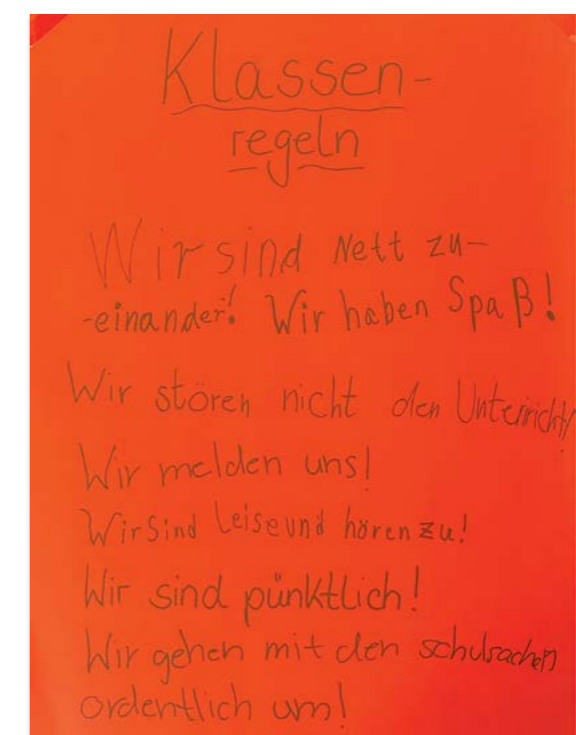 Klassen-
regeln
Wir sind Nett zu-
-einander! Wir haben Spaß!
Wir stören nicht den Unterricht!
Wir melden uns!
Wir Sind Leise und hören zu!
Wir sind pünktlich!
Wir gehen mit den schulsachen
ordentlich um!